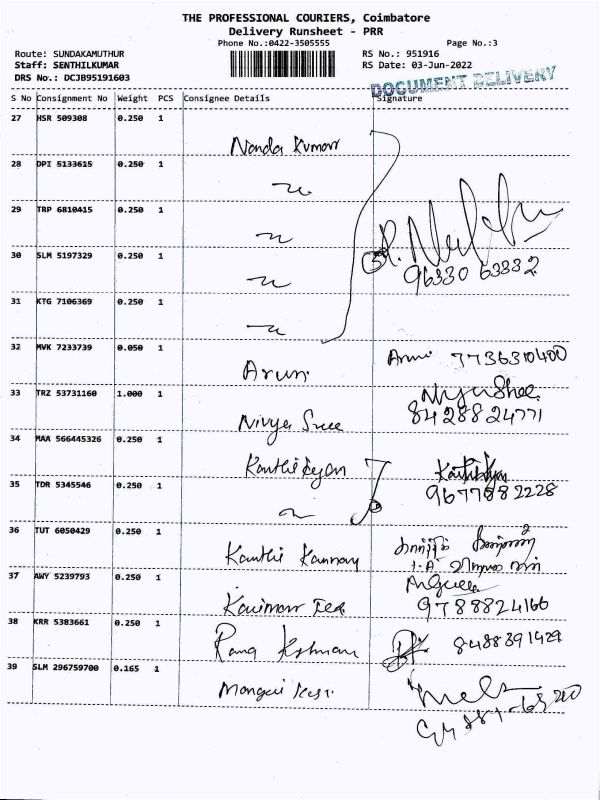 THE PROFESSIONAL COURIERS, Coimbatore
Delivery Runsheet - PRR
Phone No.:0422-3505555
Page No.:3
Route: SUNDAKAMUTHUR
RS No.: 951916
Staff: SENTHILKUMAR
RS Date: 03-Jun-2022
DRS No.: DCJB95191603
DOCUMENT DELIVERY
S No Consignment No Weight PCS Consignee Details Signature
27 HSR 509308 0.250 1
Nanda Kumar
28 DPI 5133615 0.250 1
29 TRP 6810415 0.250 1
30 SLM 5197329 0.250 1
96330 63332
31 KTG 7106369 0.250 1
32 MVK 7233739 0.050 1
Arun 7736310400
33 TRZ 53731160 1.000 1
Nivya Sree 8428824771
34 MAA 566445326 0.250 1
35 TDR 5345546 0.250 1
9677882228
36 TUT 6050429 0.250 1
37 AWY 5239793 0.250 1
9788824166
38 KRR 5383661 0.250 1
8488391429
39 SLM 296759700 0.165 1